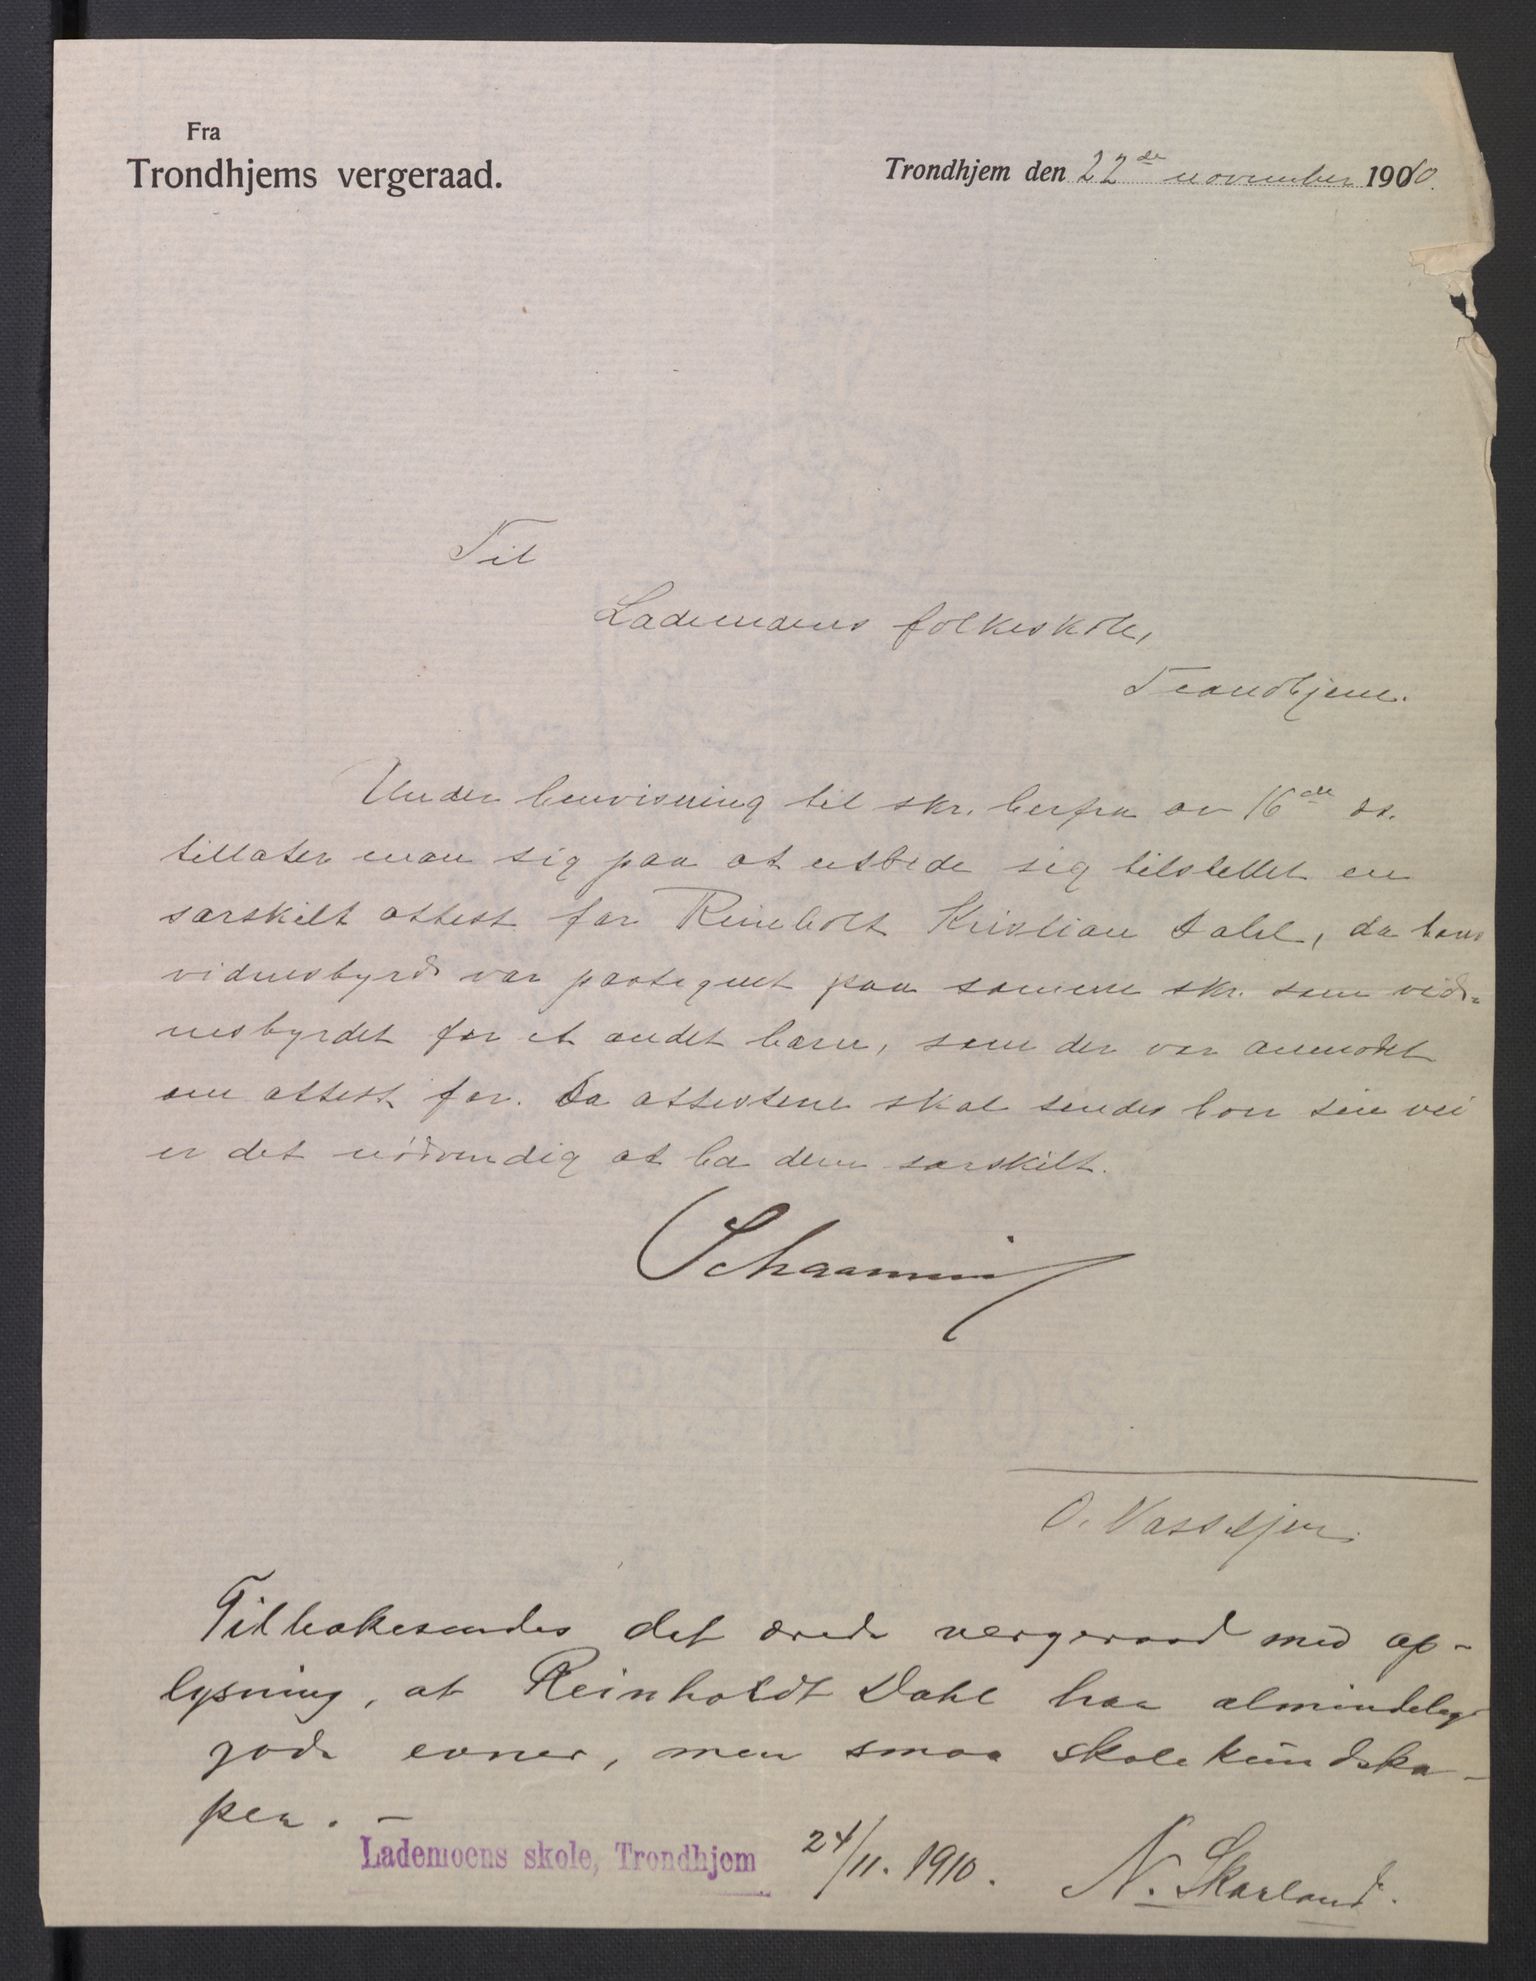 Fra
Trondhjems vergeraad.
Trondhjem den 22de november 1910.
Til
Lademoens folkeskole,
Trondhjem.
Under henvisning til skr. herfra av 16de ds.
tillater man sig paa at utbede sig tilstillet en
særskilt attest for Reinholt Kristian Dahl, da hans
vidnesbyrd var paategnet paa samme skr. som vid-
nesbyrdet for et andet barn, som der var anmodet
om attest for. Da attestene skal sendes hver sin vei
er det nødvendig at ha dem særskilt.
Schaanning
O. Vasseljen.
Tilbakesendes det ærede vergeraad med op-
lysning, at Reinholdt Dahl har almindelig
gode evner, men smaa skolekundska-
per. –
Lademoens skole, Trondhjem
24/11. 1910.
N. Skarland.